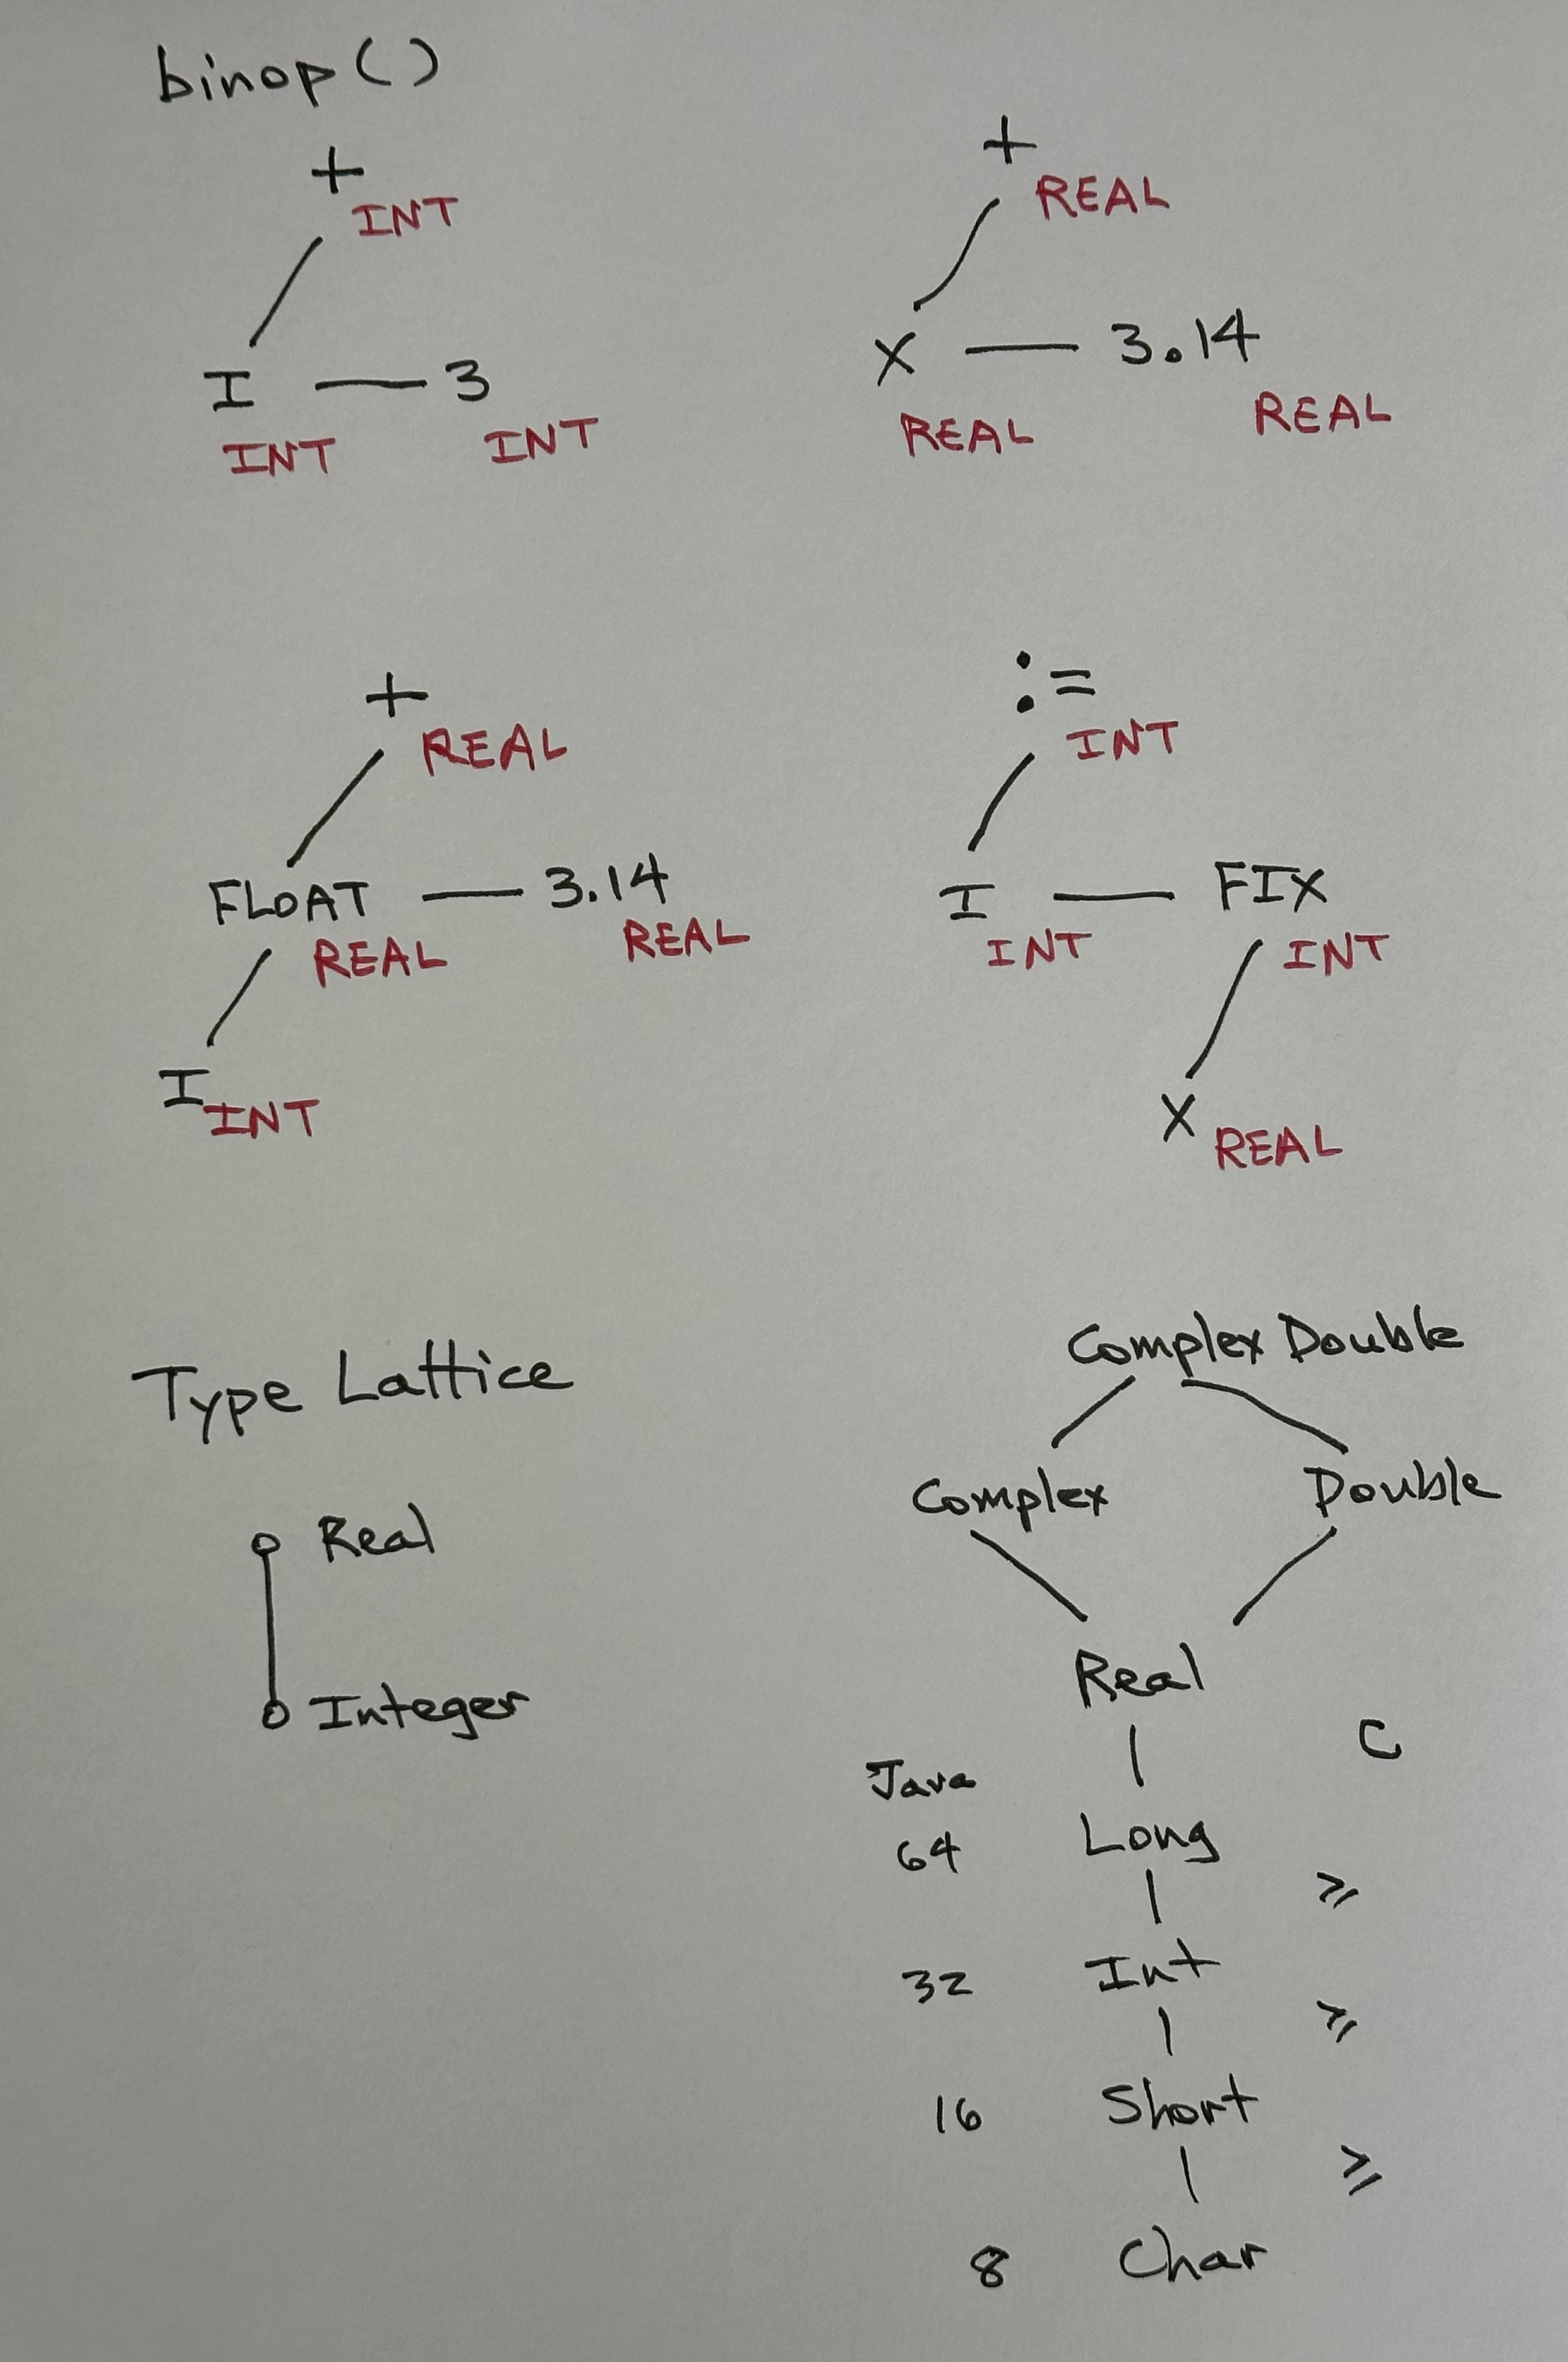 binop()
+
INT
I — 3
INT
INT
+
REAL
X — 3.14
REAL
REAL
+
REAL
FLOAT — 3.14
REAL
REAL
I
INT
:=
INT
I — FIX
INT
INT
X
REAL
Type Lattice
Real
Integer
Complex Double
Complex
Double
Real
Java
C
64 Long
≥
32 Int
≥
16 Short
≥
8 Char